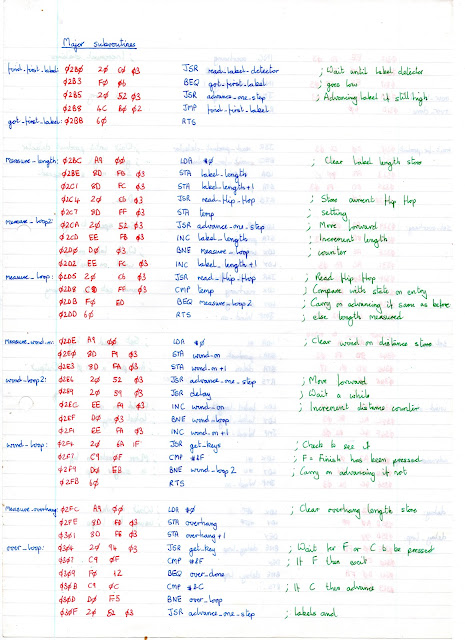 Major subroutines
find_first_label: Ø2BØ 2Ø CØ Ø3 JSR read_label_detector ; Wait until label detector
Ø2B3 FØ Ø6 BEQ got_first_label ; goes low
Ø2B5 2Ø 52 Ø3 JSR advance_one_step ; Advancing label if still high
Ø2B8 4C BØ Ø2 JMP find_first_label
got_first_label: Ø2BB 6Ø RTS
measure_length: Ø2BC A9 ØØ LDA #Ø ; Clear label length store
Ø2BE 8D FB Ø3 STA label_length
Ø2C1 8D FC Ø3 STA label_length+1
Ø2C4 2Ø C6 Ø3 JSR read_Hip_Hop ; Store current Hip Hop
Ø2C7 8D FF Ø3 STA temp ; setting
measure_loop2: Ø2CA 2Ø 52 Ø3 JSR advance_one_step ; Move forward
Ø2CD EE FB Ø3 INC label_length ; Increment length
Ø2DØ DØ Ø3 BNE measure_loop ; counter
Ø2D2 EE FC Ø3 INC label_length+1
measure_loop: Ø2D5 2Ø C6 Ø3 JSR read_Hip_Hop ; Read Hip Hop
Ø2D8 CD FF Ø3 CMP temp ; Compare with state on entry
Ø2DB FØ ED BEQ measure_loop2 ; Carry on advancing if same as before
Ø2DD 6Ø RTS ; else length measured
Measure_wind_on: Ø2DE A9 ØØ LDA #Ø ; Clear wind on distance store
Ø2EØ 8D F9 Ø3 STA wind_on
Ø2E3 8D FA Ø3 STA wind_on+1
wind_loop2: Ø2E6 2Ø 52 Ø3 JSR advance_one_step ; Move forward
Ø2E9 2Ø Ø3 JSR delay ; Wait a while
Ø2EC EE F9 Ø3 INC wind_on ; Increment distance counter
Ø2EF DØ Ø3 BNE wind_loop
Ø2F1 EE FA Ø3 INC wind_on+1
wind_loop: Ø2F4 2Ø 6A 1F JSR get_keys ; Check to see if
Ø2F7 C9 ØF CMP #&F ; F=Finish has been pressed
Ø2F9 DØ EB BNE wind_loop2 ; Carry on advancing if not
Ø2FB 6Ø RTS
Measure_overhang: Ø2FC A9 ØØ LDA #Ø ; Clear overhang length store
Ø2FE 8D FD Ø3 STA overhang
Ø3Ø1 8D FE Ø3 STA overhang+1
over_loop: Ø3Ø4 2Ø 94 Ø3 JSR get_key ; Wait for F or C to be pressed
Ø3Ø7 C9 ØF CMP #&F ; If F then exit
Ø3Ø9 FØ 12 BEQ over_done
Ø3ØB C9 ØC CMP #&C ; If C then advance
Ø3ØD DØ F5 BNE over_loop
Ø3ØF 2Ø 52 Ø3 JSR advance_one_step ; labels and